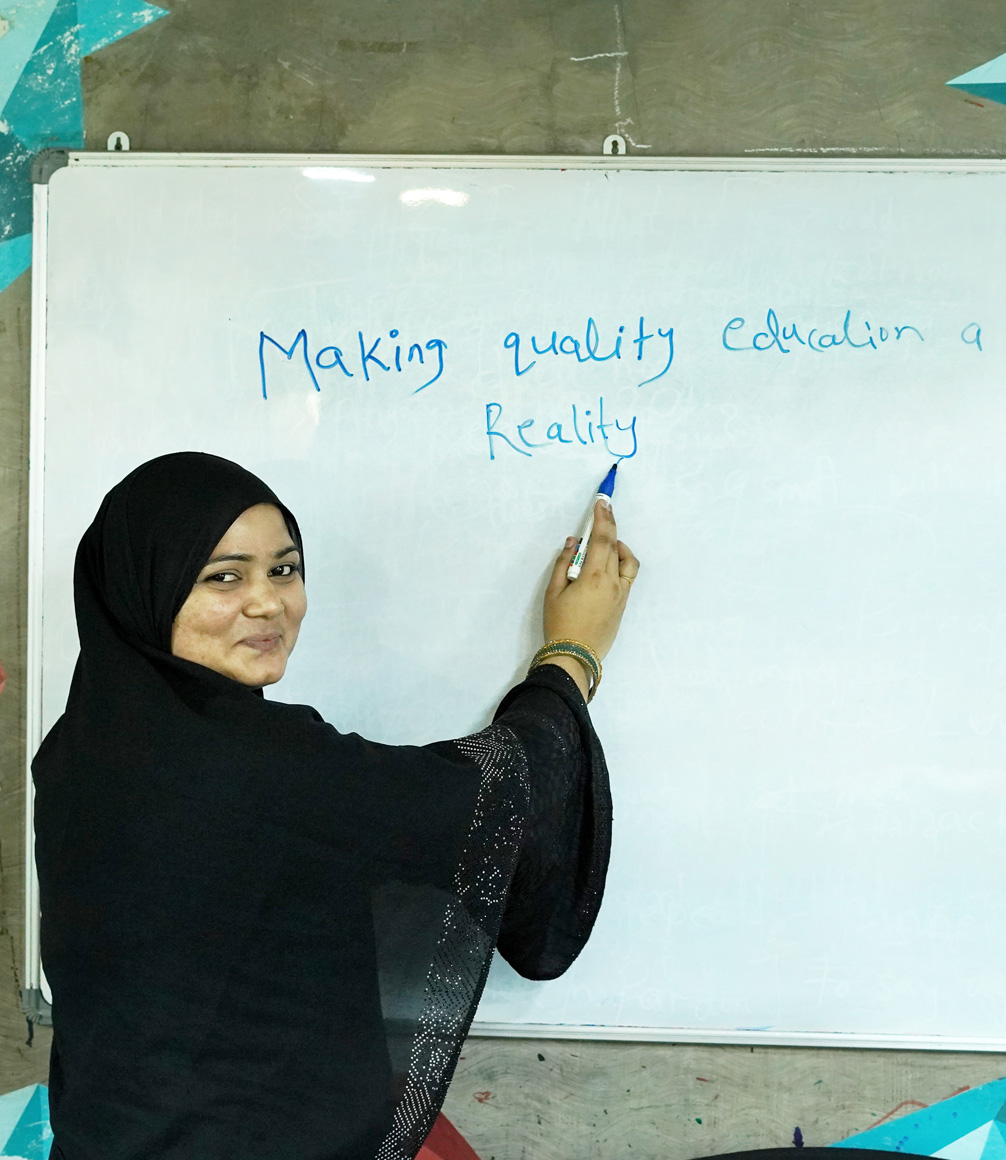 Making quality education a
Reality